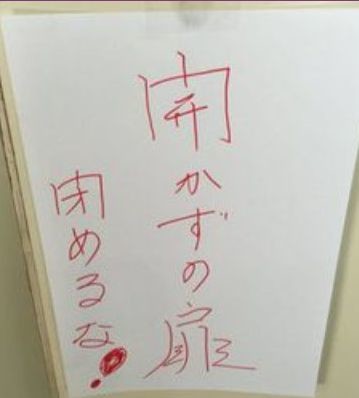 開かずの扉
閉めるな!